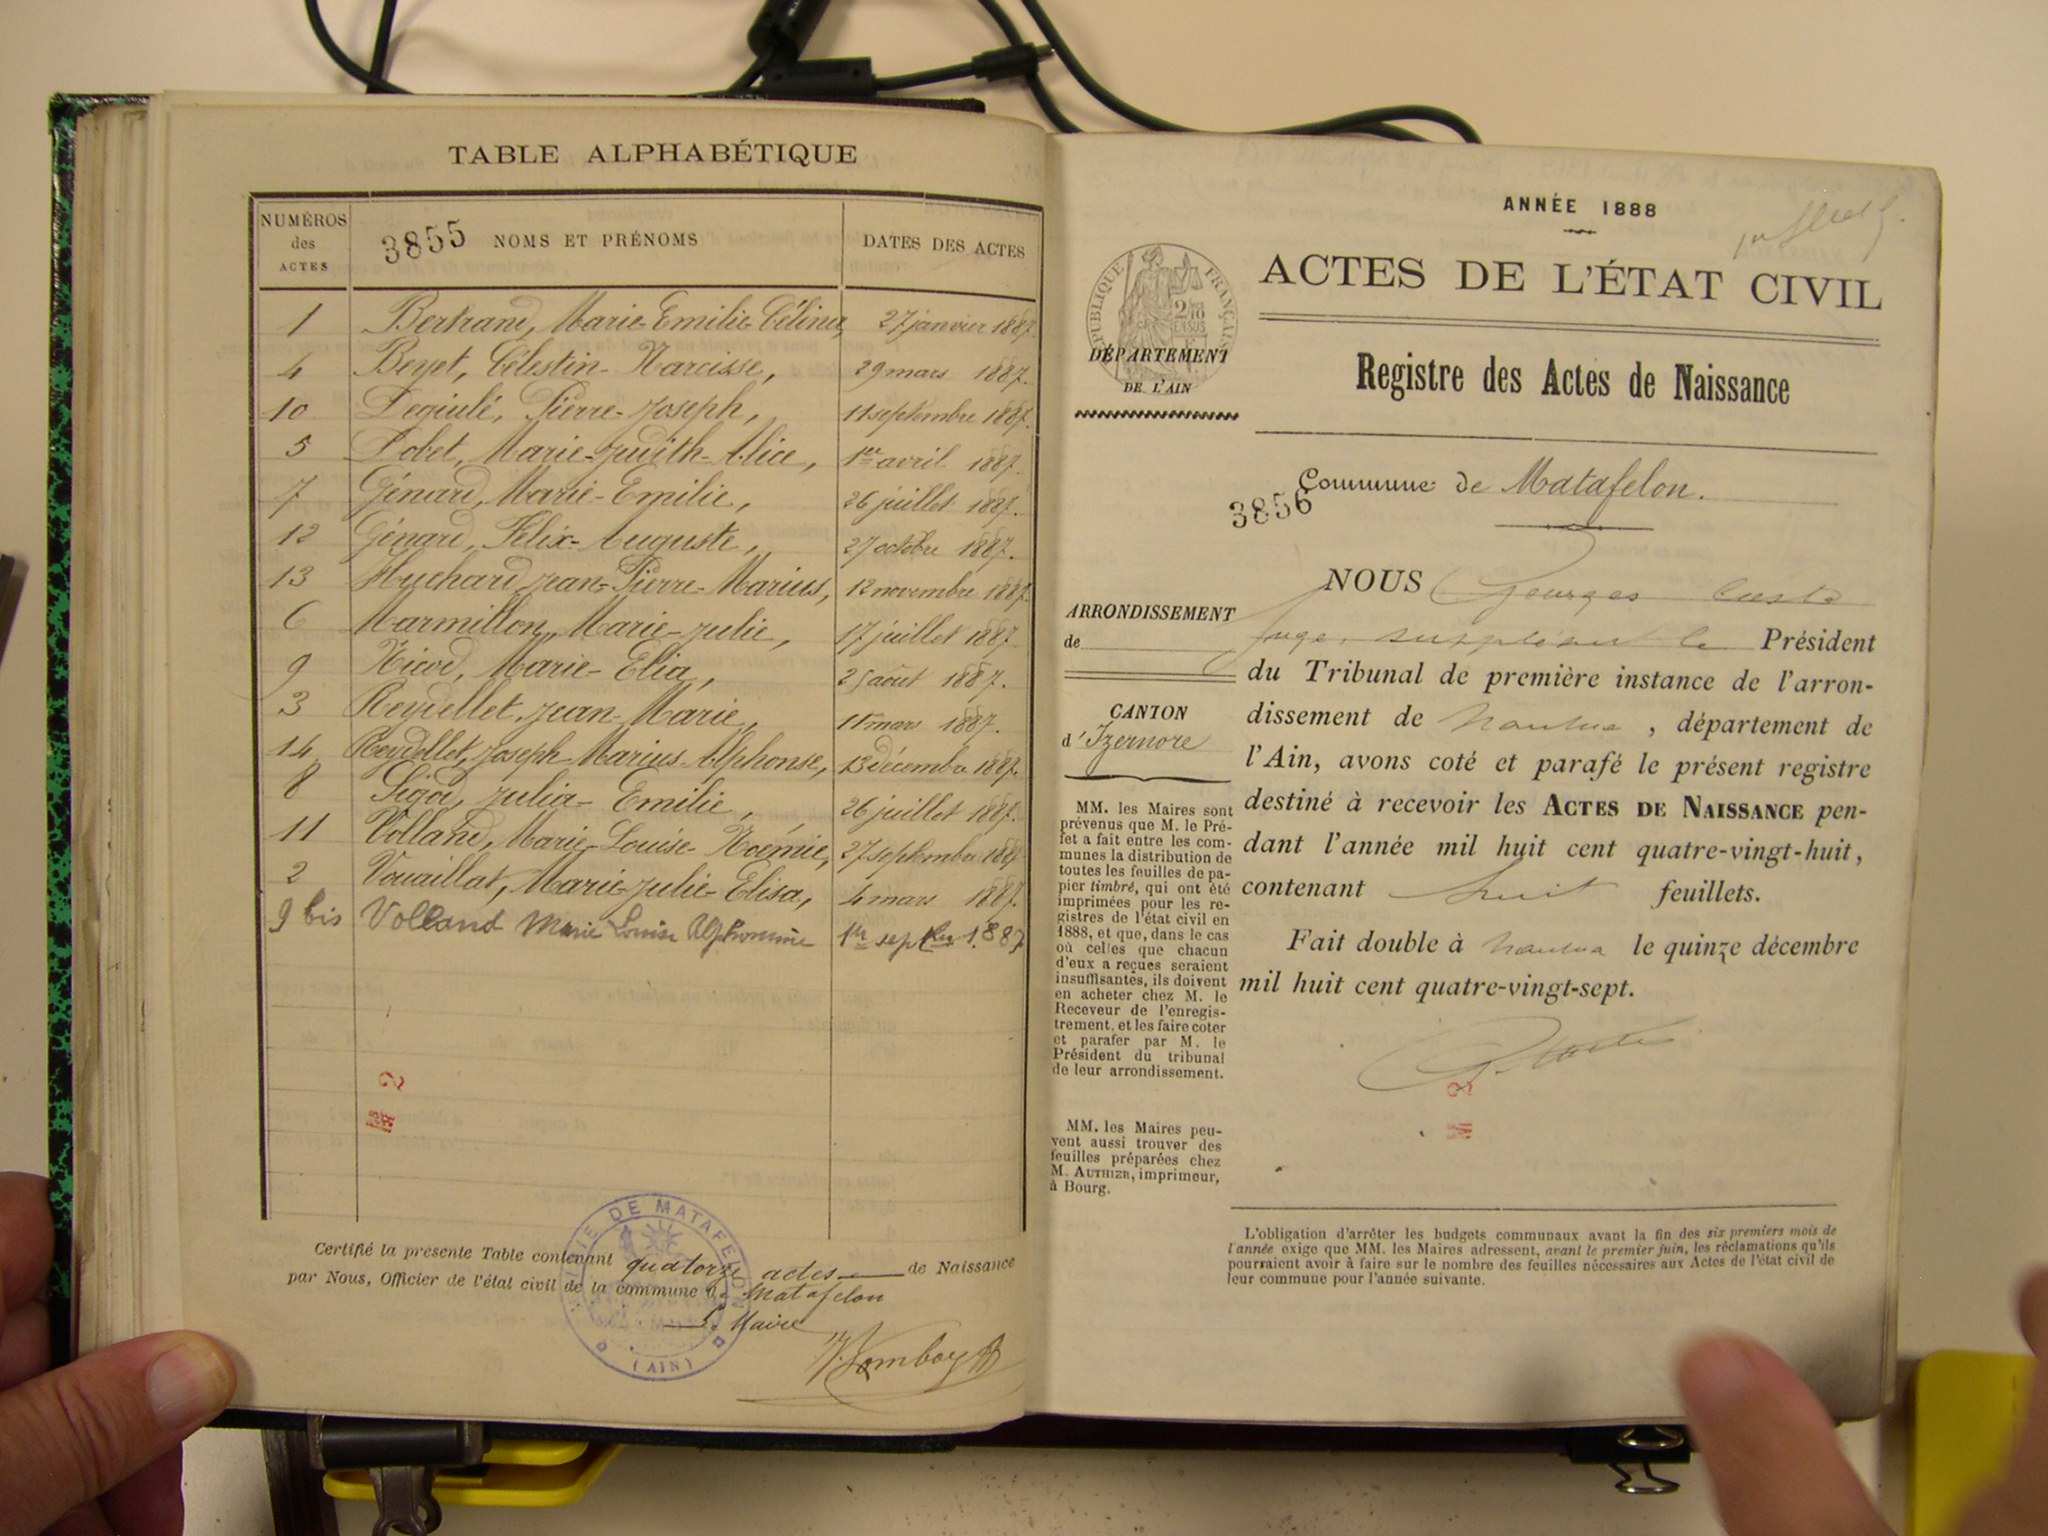 TABLE ALPHABÉTIQUE
NUMÉROS des ACTES
3855 NOMS ET PRÉNOMS
DATES DES ACTES
1 Bertrand, Marie-Emilie-Célina, 27 janvier 1887.
4 Beyet, Célestin-Narcisse, 29 mars 1887.
10 Degiulé, Pierre-Joseph, 11 septembre 1887.
5 Dobet, Marie-Judith-Alice, 1er avril 1887.
7 Génard, Marie-Emilie, 26 juillet 1887.
12 Génard, Félix-Auguste, 27 octobre 1887.
13 Huchard Jean-Pierre-Marius, 12 novembre 1887.
6 Marmillon, Marie-Julie, 17 juillet 1887.
9 Nicod, Marie-Elia, 25 août 1887.
3 Reydellet, Jean-Marie, 11 mars 1887.
14 Reydellet, Joseph-Marius-Alphonse, 13 décembre 1887.
8 Sigod, Julia-Emilie, 26 juillet 1887.
11 Volland, Marie-Louise-Noémie, 27 septembre 1887
2 Vouaillat, Marie-Julie-Elisa, 4 mars 1887.
9 bis Volland Marie Louise Alphonsine 1er septbre 1887
2
Certifié la présente Table contenant quatorze actes de Naissance
par Nous, Officier de l'état civil de la commune de Matafelon
Le Maire
MAIRIE DE MATAFELON
(AIN)
ANNÉE 1888
ACTES DE L'ÉTAT CIVIL
RÉPUBLIQUE FRANÇAISE
DÉPARTEMENT
DE L'AIN
Registre des Actes de Naissance
Commune de Matafelon.
3856
ARRONDISSEMENT
de
CANTON
d'Izernore
MM. les Maires sont
prévenus que M. le Pré-
fet a fait entre les com-
munes la distribution de
toutes les feuilles de pa-
pier timbré, qui ont été
imprimées pour les re-
gistres de l'état civil en
1888, et que, dans le cas
où celles que chacun
d'eux a reçues seraient
insuffisantes, ils doivent
en acheter chez M. le
Receveur de l'enregis-
trement, et les faire coter
et parafer par M. le
Président du tribunal
de leur arrondissement.
MM. les Maires peu-
vent aussi trouver des
feuilles préparées chez
M. AUTHIER, imprimeur,
à Bourg.
NOUS Georges
Juge suppléant le Président
du Tribunal de première instance de l'arron-
dissement de Nantua, département de
l'Ain, avons coté et parafé le présent registre
destiné à recevoir les ACTES DE NAISSANCE pen-
dant l'année mil huit cent quatre-vingt-huit,
contenant huit feuillets.
Fait double à Nantua le quinze décembre
mil huit cent quatre-vingt-sept.
2
L'obligation d'arrêter les budgets communaux avant la fin des six premiers mois de
l'année exige que MM. les Maires adressent, avant le premier juin, les réclamations qu'ils
pourraient avoir à faire sur le nombre des feuilles nécessaires aux Actes de l'état civil de
leur commune pour l'année suivante.